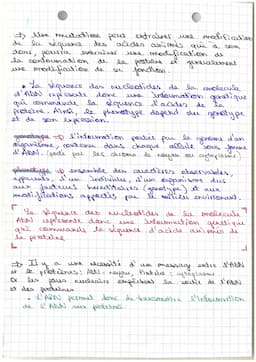 => Une mutation peut entraîner une modification
de la séquence des acides aminés qui à son
tour, pourra entraîner une modification de
la conformation de la protéine et
une modification de sa fonction.
• La séquence des nucléotides de la molécule
d'ADN représente donc une information génétique
qui commande la séquence d'acides de la
protéine. Ainsi, le phénotype dépend du génotype
et de son expression.
génotype => L'information portée par le génome d'un
organisme, contenu dans chaque cellule sous forme
d'ADN. (porté par les chromo. du noyau ou cytoplasme)
phénotype => ensemble des caractères observables,
apparents, d'un individu, d'un organisme dus
aux facteurs héréditaires (génotype) et aux
modifications apportés par le milieu environnant.
La séquence des nucléotides de la molécule
ADN représente donc une information génétique
qui commande la séquence d'acide aminés de
la protéine.
=> Il y a une nécessité d'un messager entre l'ADN
et le protéines: ADN: noyau, Protéine: cytoplasme
Or les pores nucléaires empêchent la sortie de l'ADN
et des protéines
• L'ARN permet donc de transmettre l'information
de l'ADN aux protéines